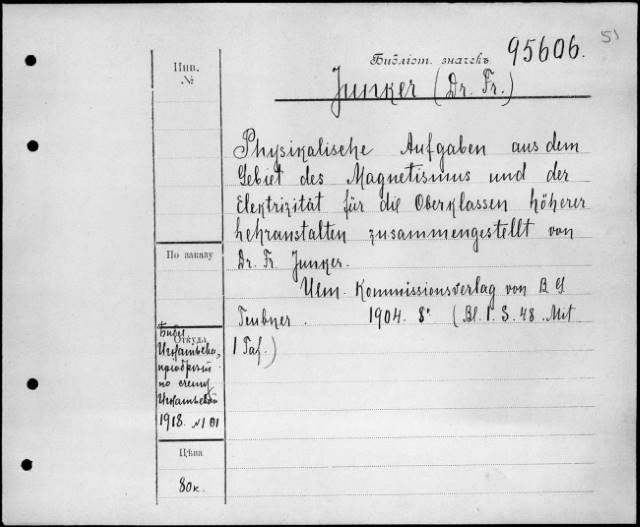 51
Библіот. значекъ 95606.
Junker (Dr. Fr.)
Инв.
№
Physikalische Aufgaben aus dem
Gebiet des Magnetismus und der
Elektrizität für die Oberklassen höherer
Lehranstalten zusammengestellt von
Dr. Fr. Junker.
Ulm. Kommissionsverlag von B G
Teubner. 1904. 8° (Bl. 1. S. 48. Mit
1 Taf.)
По заказу
Откуда
Библ
Игнатьева,
по счету
1918. №101
Цѣна
80к.